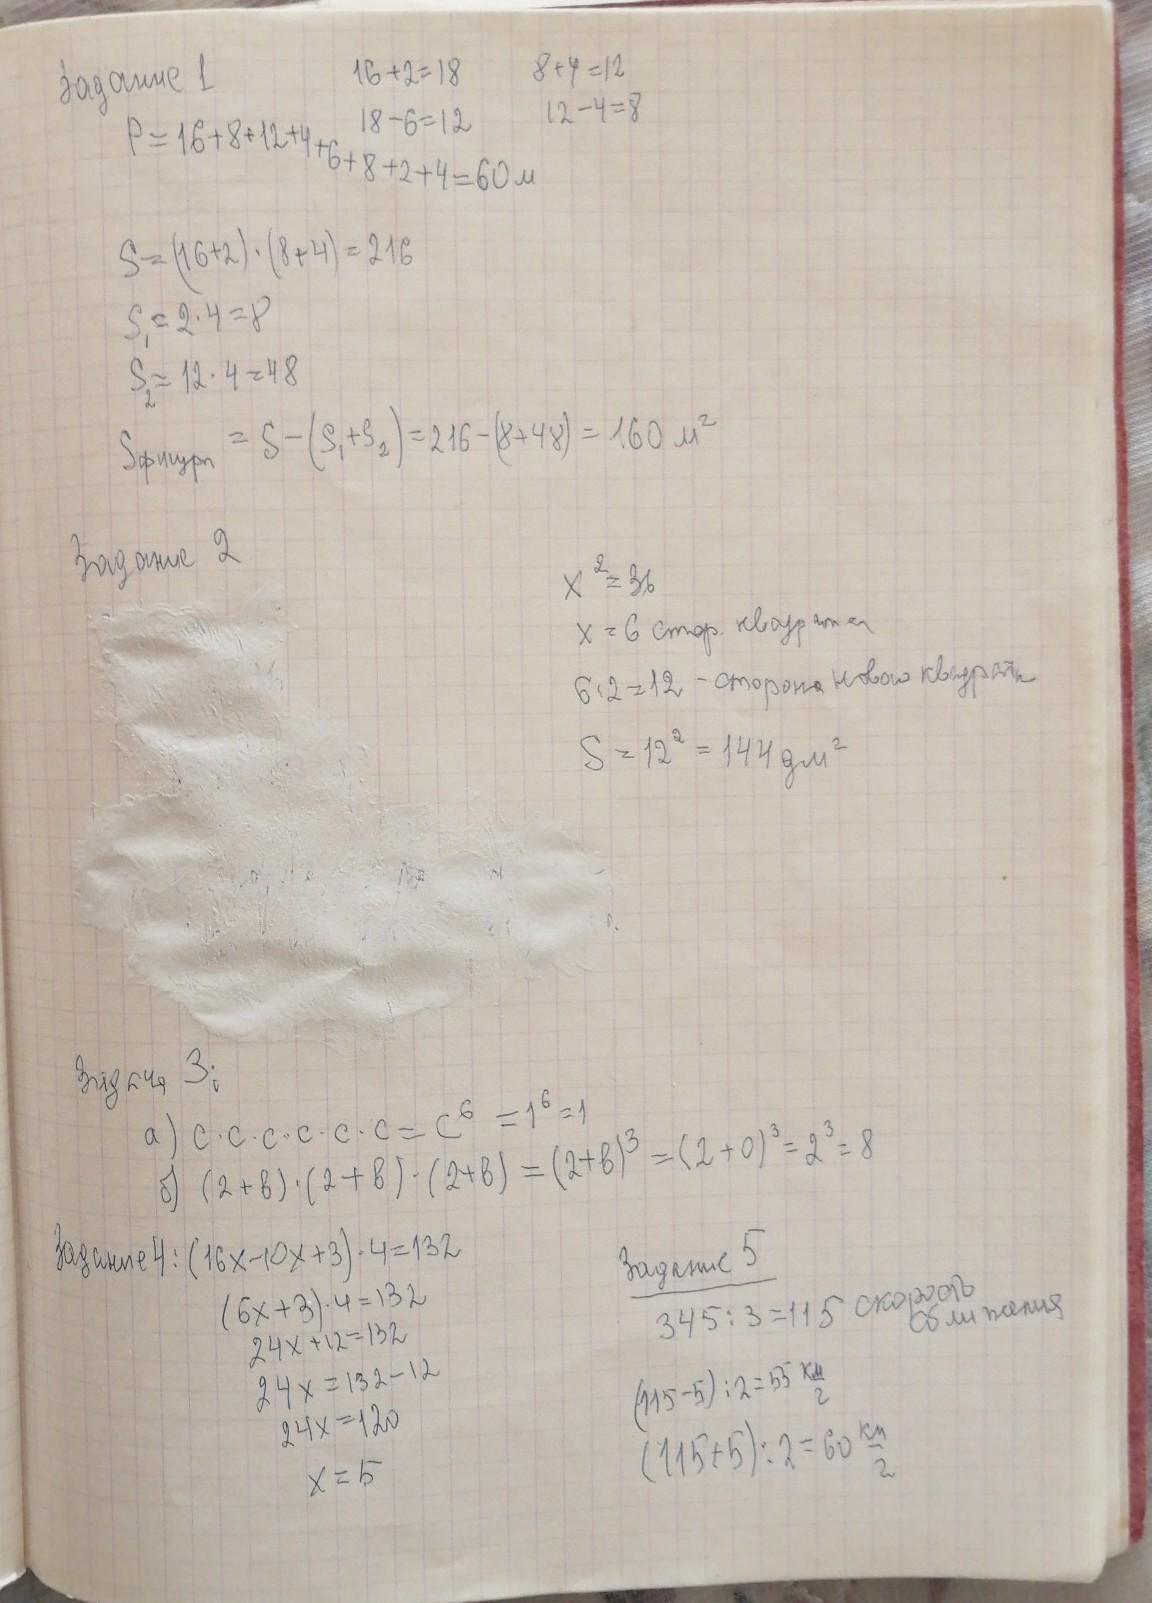 Задание 1
16+2=18
8+4=12
18-6=12
12-4=8
P=16+8+12+4+6+8+2+4=60м
S=(16+2)·(8+4)=216
S₁=2·4=8
S₂=12·4=48
Sфигуры=S-(S₁+S₂)=216-(8+48)=160 м²
Задание 2
x²=36
x=6 стор. квадрата
6·2=12 - сторона нового квадрата
S=12²=144 дм²
Задача 3:
а) c·c·c·c·c·c=c⁶=1⁶=1
б) (2+b)·(2+b)·(2+b)=(2+b)³=(2+0)³=2³=8
Задание 4: (16x-10x+3)·4=132
(6x+3)·4=132
24x+12=132
24x=132-12
24x=120
x=5
Задание 5
345:3=115 скорость
сближения
(115-5):2=55 км/г
(115+5):2=60 км/г